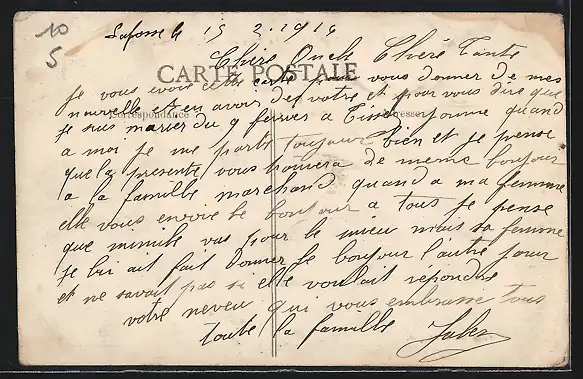 10
5
Lafosse le 15 2. 1914
Chère Oncle Chère Tante
CARTE POSTALE
Je vous evoie cette carte pour vous donner de mes
nouvelle et en avoir des votre et pour vous dire que
Correspondance
Adresse
je suis marier du 9 fevrier a une jeune quand
a moi je me porte toujour bien et je pense
que la presente vous trouvera de meme bonjour
a la famille marchand quand a ma femme
elle vous envoie le bonjour a tous je pense
que mimile vas pour le mieu nous sa femme
je lui ait fait donner le bonjour l'autre jour
et ne savait pas si elle voulait repondre
votre neveu qui vous embrasse tous
toute la famille Jules